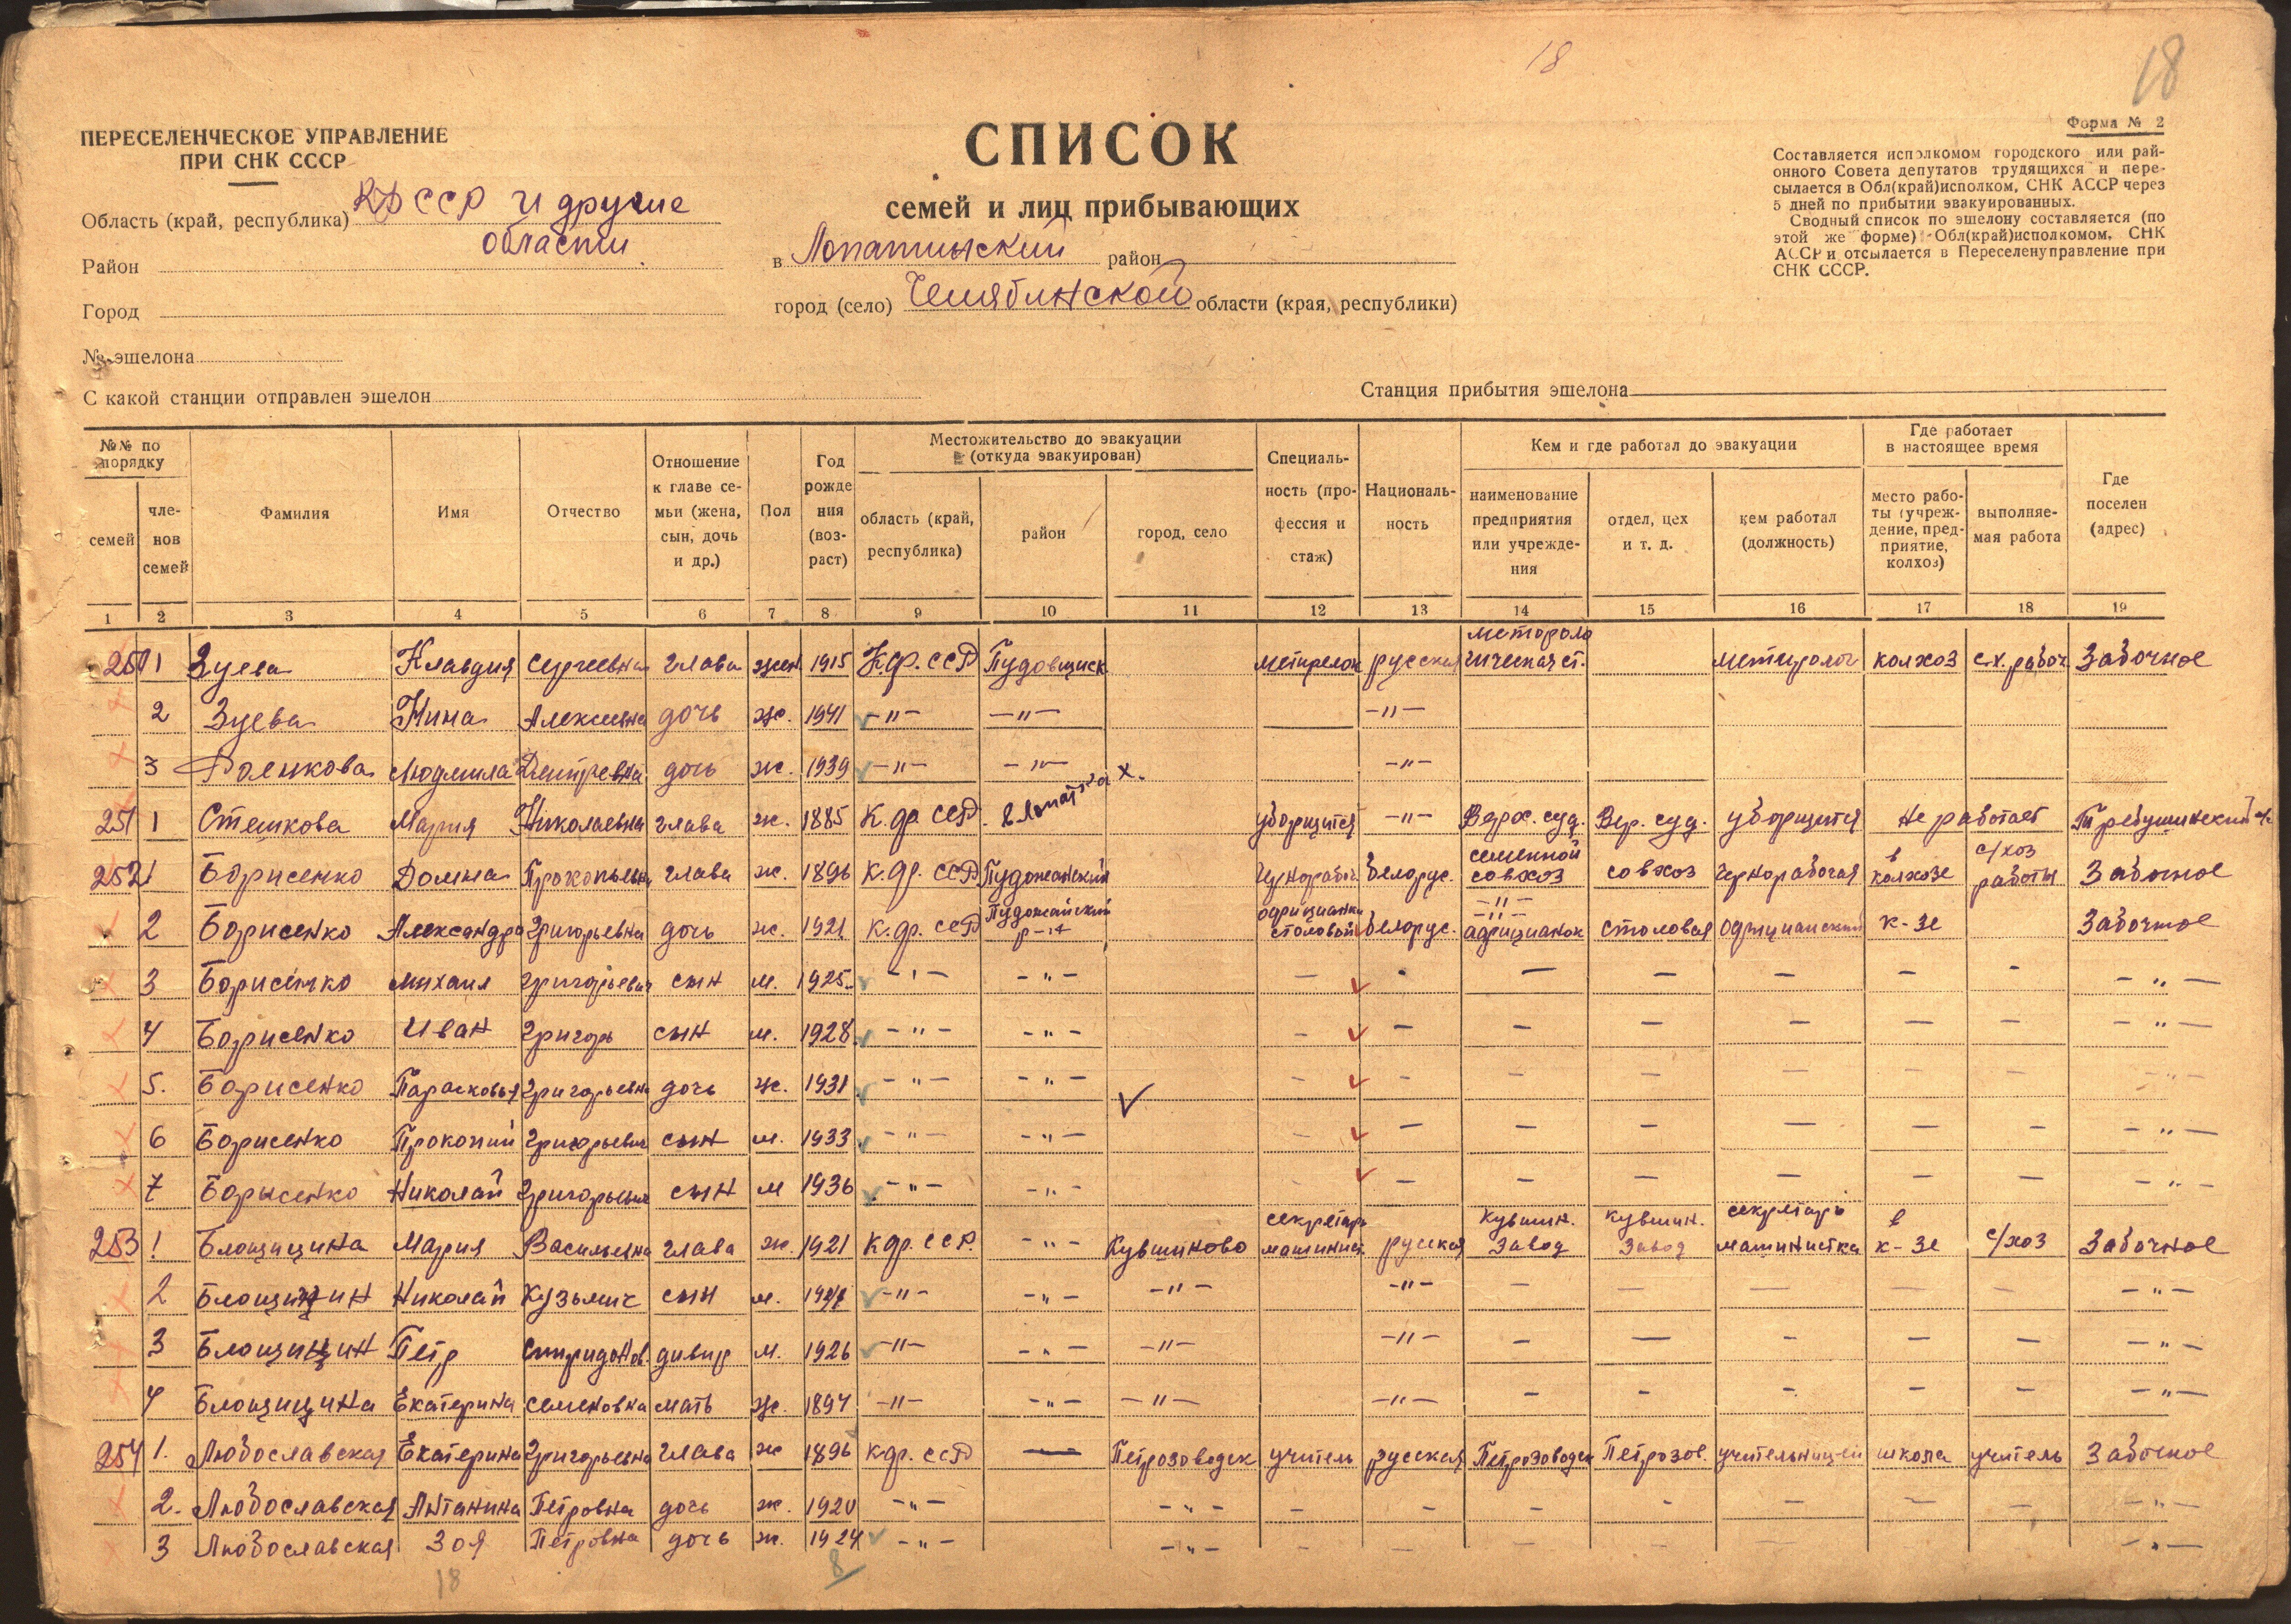 18
18
ПЕРЕСЕЛЕНЧЕСКОЕ УПРАВЛЕНИЕ
ПРИ СНК СССР
СПИСОК
семей и лиц прибывающих
Форма № 2
Составляется исполкомом городского или рай-
онного Совета депутатов трудящихся и пере-
сылается в Обл(край)исполком, СНК АССР через
5 дней по прибытии эвакуированных.
Сводный список по эшелону составляется (по
этой же форме) Обл(край)исполкомом, СНК
АССР и отсылается в Переселенуправление при
СНК СССР.
Область (край, республика) КФССР и другие
области.
Район
Город
№ эшелона
С какой станции отправлен эшелон
в Лопатинский район
город (село) Челябинской области (края, республики)
Станция прибытия эшелона
№№ по порядку
семей
членов семей
Фамилия
Имя
Отчество
Отношение к главе се-мьи (жена, сын, дочь и др.)
Пол
Год рожде ния (воз-раст)
Местожительство до эвакуации (откуда эвакуирован)
область (край, республика)
район
город, село
Специаль-ность (про-фессия и стаж)
Националь-ность
Кем и где работал до эвакуации
наименование предприятия или учрежде-ния
отдел, цех и т. д.
кем работал (должность)
Где работает в настоящее время
место рабо-ты (учреж-дение, пред-приятие, колхоз)
выполняе-мая работа
Где поселен (адрес)
1 2 3 4 5 6 7 8 9 10 11 12 13 14 15 16 17 18 19
1 Зуева Клавдия Сергеевна глава жен. 1915 К.ф.ССР русская колхоз с.х. рабоч. Забочное
2 Зуева Нина Алексеевна дочь ж. 1941 -"- -"- -"-
3 Роленкова Людмила Дмитревна дочь ж. 1939 -"- -"- х. -"-
251 1 Стешкова Мария Николаевна глава ж. 1885 К.фр. ССР уборщится -"- Верх. суд. Вер. суд. уборщится не работает
252 1 Борисенко Домна Прокопьевна глава ж. 1896 К.фр. ССР Пудожанский Чернорабоч. белорус. семенной совхоз совхоз чернорабочая в колхозе с/хоз работы Забочное
2 Борисенко Александра Григорьевна дочь ж. 1921 К.фр. ССР Пудожанский р-н столовой белорус. -"- столовая к-зе Забочное
3 Борисенко Михаил Григорьевич сын м. 1925 -"- -"- - - - - - - -"-
4 Борисенко Иван Григорь сын м. 1928 -"- -"- - - - - - - - -"-
5. Борисенко Парасковья Григорьевна дочь ж. 1931 -"- -"- - - - - - - - -"-
6 Борисенко Прокопий Григорьевич сын м. 1933 -"- -"- - - - - - - - -"-
7 Борысенко Николай Григорьевич сын м 1936 -"- -"- - - - - - - -"-
253 1 Блощицина Мария Васильевна глава ж. 1921 К фр. ССР. -"- Кувшиново секретарь машинист. русская Кувшин. завод Кувшин. завод секретарь машинистка в к-зе с/хоз Забочное
2 Блощицин Николай Кузьмич сын м. -"- -"- -"- -"- - - - - - -"-
3 Блощицин Пётр Спиридонов. дивир м. 1926 -"- -"- -"- -"- - - - - - -"-
4 Блощицина Екатерина Семеновна мать ж. 1897 -"- -"- -"- -"- - - - - - -"-
254 1. Любославская Екатерина Григорьевна глава ж 1896 кфр. ССР — Петрозоводск учитель русская Петрозоводск Петрозов. учительницей школа учитель Забочное
2. Любославская Антанина Петровна дочь ж. 1920 -"- -"- - - - - - - - -"-
3 Любославская Зоя Петровна дочь ж. 1924 -"- -"- - - - - - - - -"-
18
8